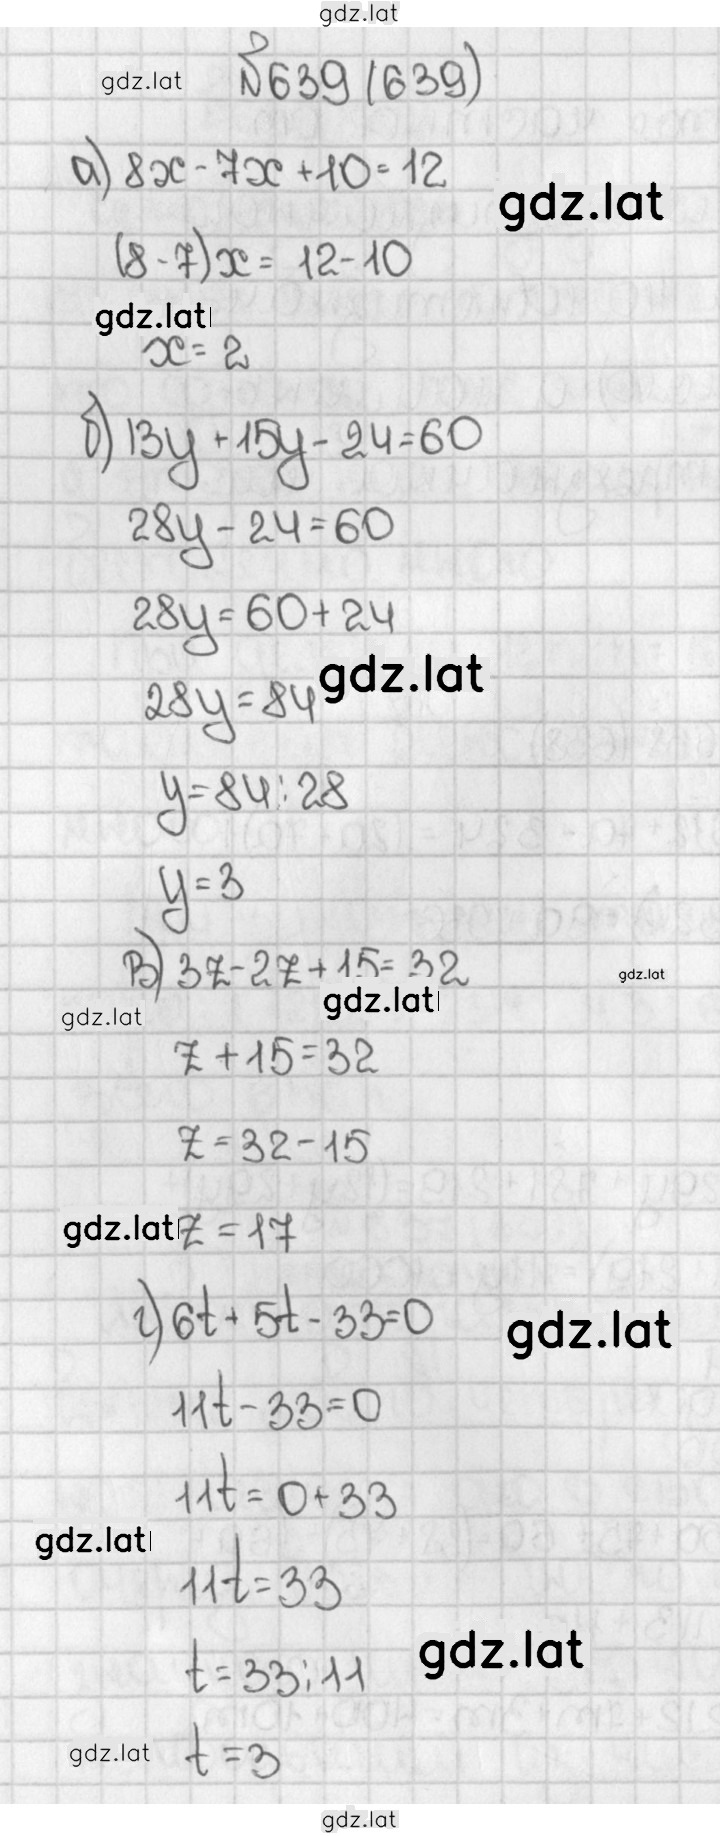 gdz.lat
№639 (639)
gdz.lat
а) 8x - 7x + 10 = 12
gdz.lat
(8 - 7)x = 12 - 10
gdz.lat
x = 2
б) 13y + 15y - 24 = 60
28y - 24 = 60
28y = 60 + 24
gdz.lat
28y = 84
y = 84 : 28
y = 3
в) 3z - 2z + 15 = 32
gdz.lat
gdz.lat
gdz.lat
z + 15 = 32
z = 32 - 15
gdz.lat
z = 17
г) 6t + 5t - 33 = 0
gdz.lat
11t - 33 = 0
11t = 0 + 33
gdz.lat
11t = 33
gdz.lat
t = 33 : 11
gdz.lat
t = 3
gdz.lat